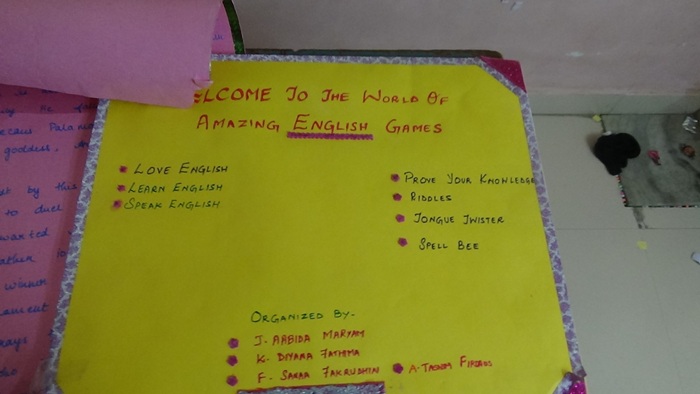 ELCOME TO THE WORLD OF
AMAZING ENGLISH GAMES
LOVE ENGLISH
LEARN ENGLISH
SPEAK ENGLISH
PROVE YOUR KNOWLEDGE
RIDDLES
TONGUE TWISTER
SPELL BEE
ORGANIZED BY-
J. AABIDA MARYAM
K. DIYANA FATHIMA
F. SANAA FAKRUDHIN
A. TASNIM FIRDAUS
goddess,
by this
to duel
wanted
winner